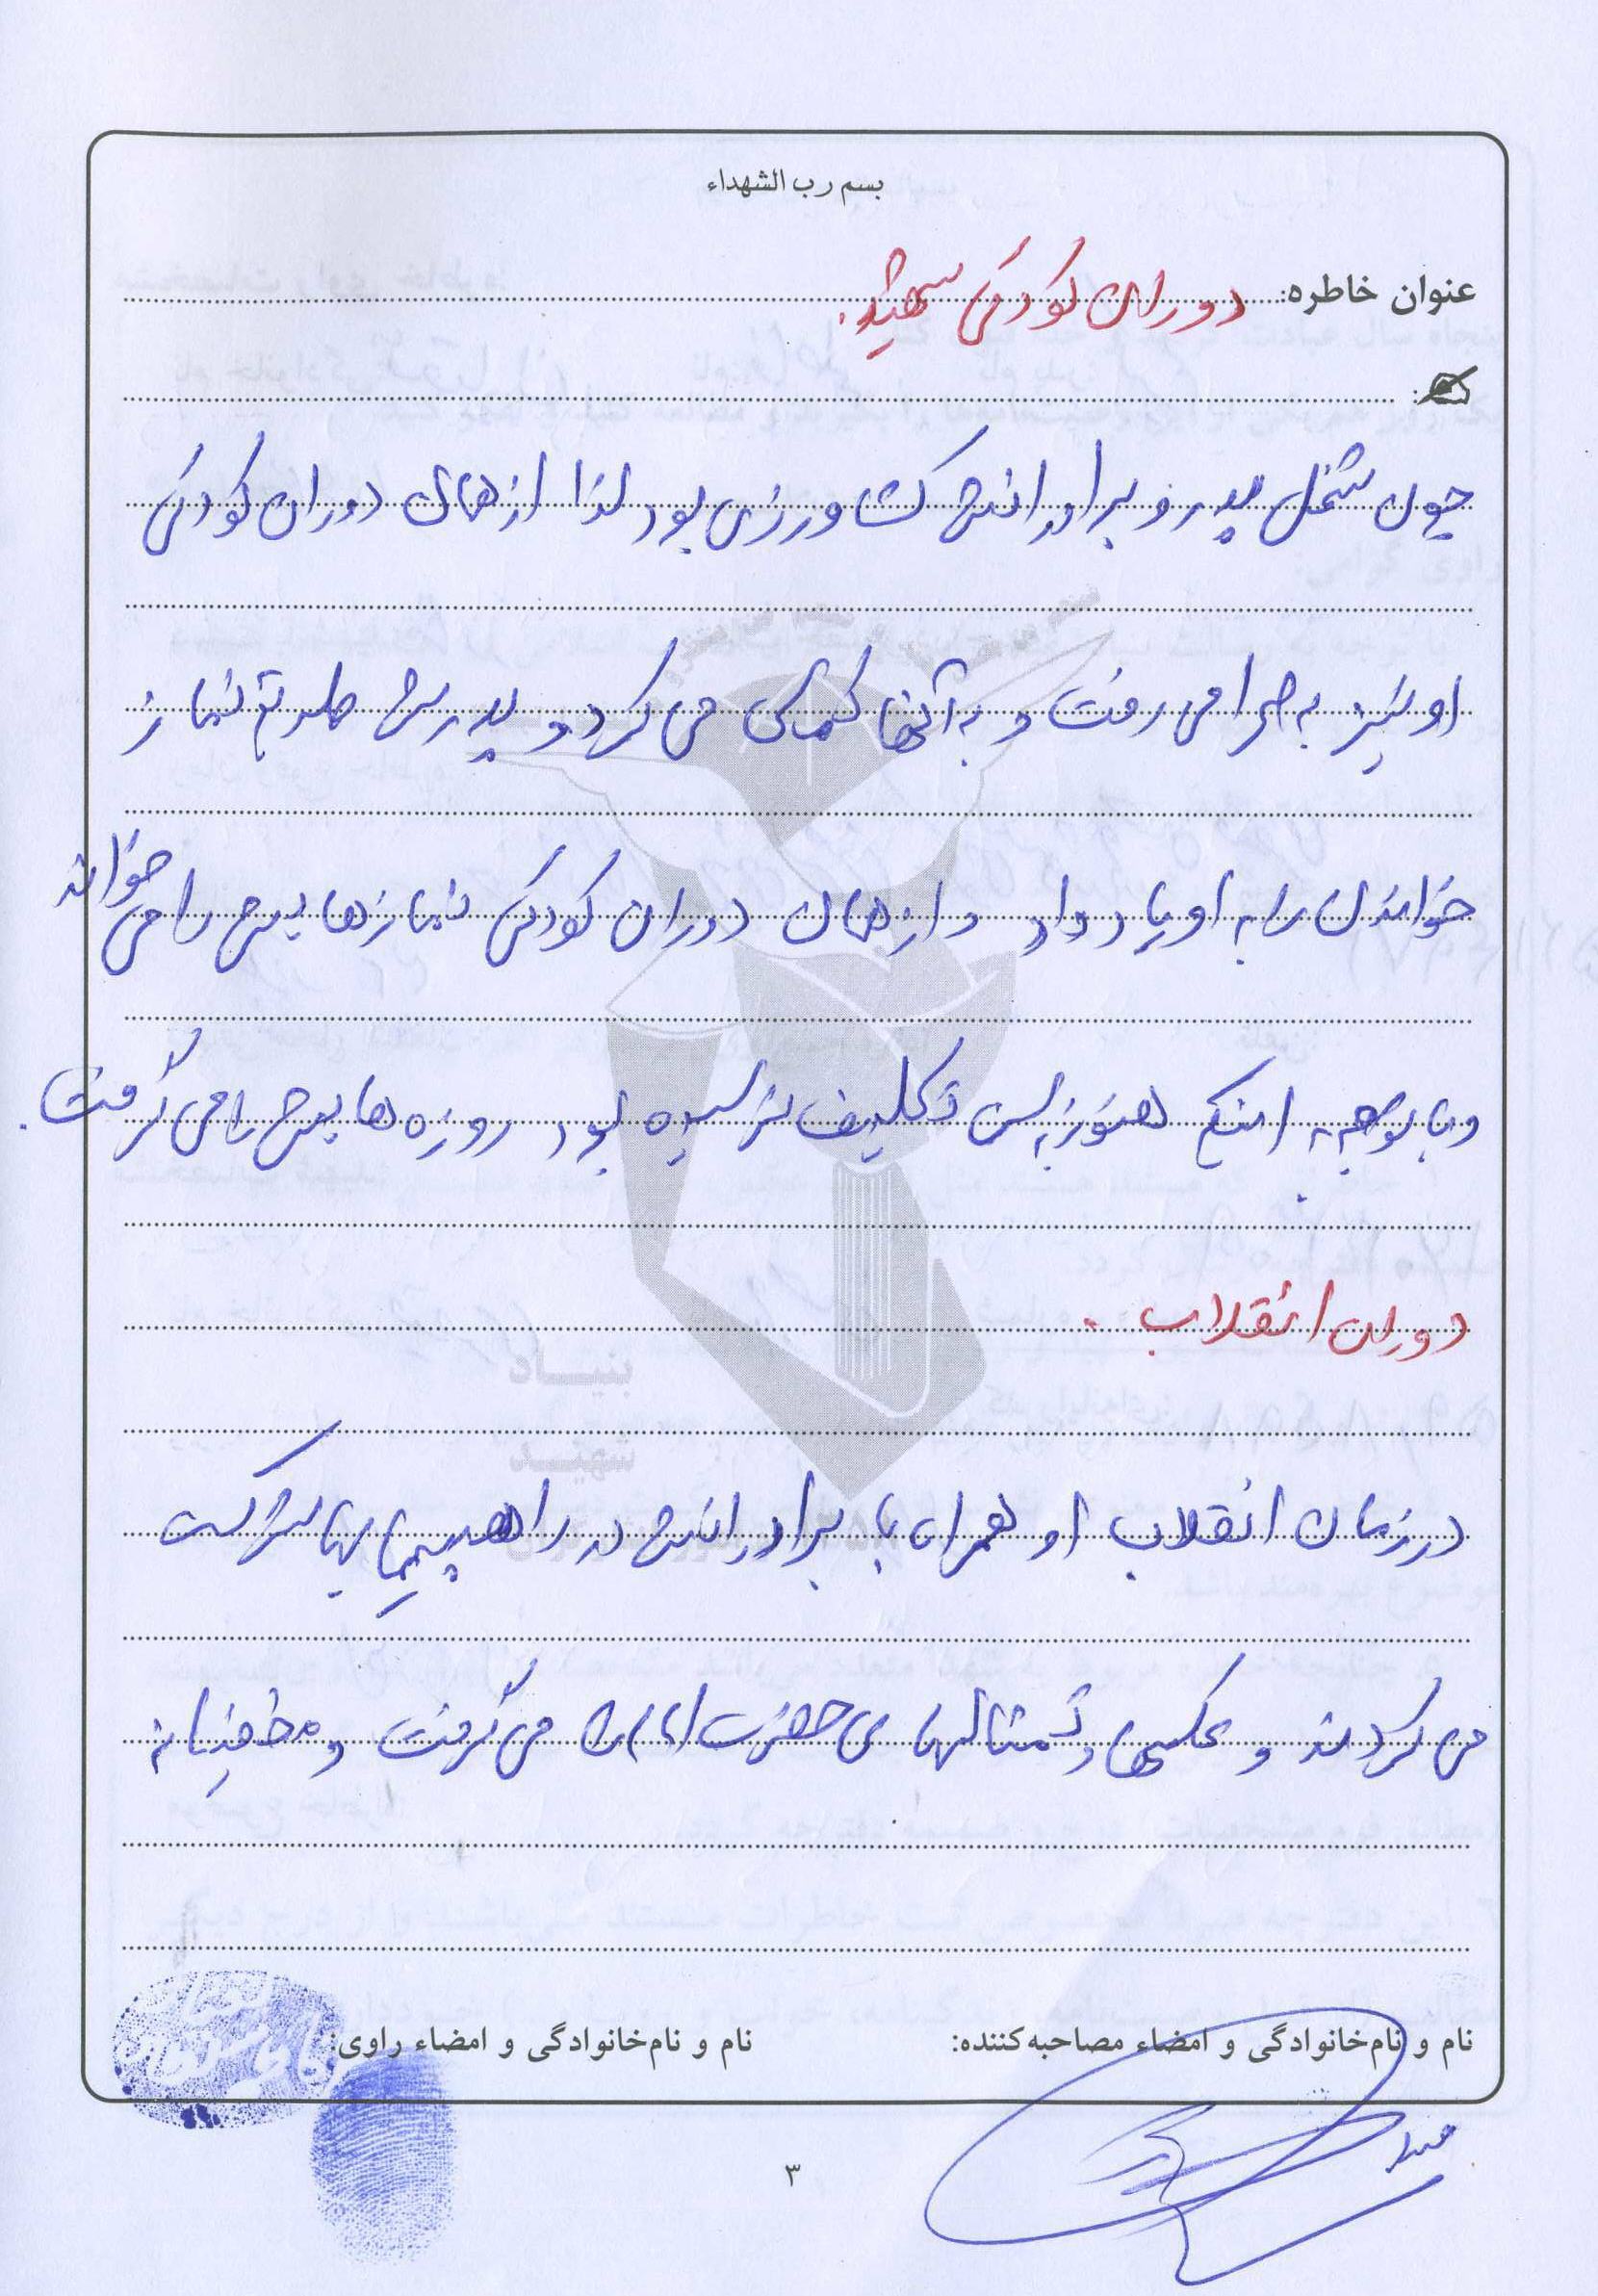 بسم رب الشهداء
عنوان خاطره: دوران کودکی شهید.
چون شغل پدر و برادرانش کشاورزی بود لذا از همان دوران کودکی
او نیز به صحرا می رفت و به آنها کمک می کرد و پدرش طریقه نماز
خواندن را به او یاد داد و از همان دوران کودکی نمازهایش را می خواند
و با توجه به اینکه هنوز به سن تکلیف نرسیده بود روزه هایش را می گرفت.
دوران انقلاب.
در زمان انقلاب او همراه با برادرانش در راهپیماییها شرکت
می کردند و عکسها و تمثالهای حضرت امام را می گرفت و مخفیانه
نام و نام‌خانوادگی و امضاء مصاحبه‌کننده:
نام و نام‌خانوادگی و امضاء راوی:
۳
بنیاد
شهید